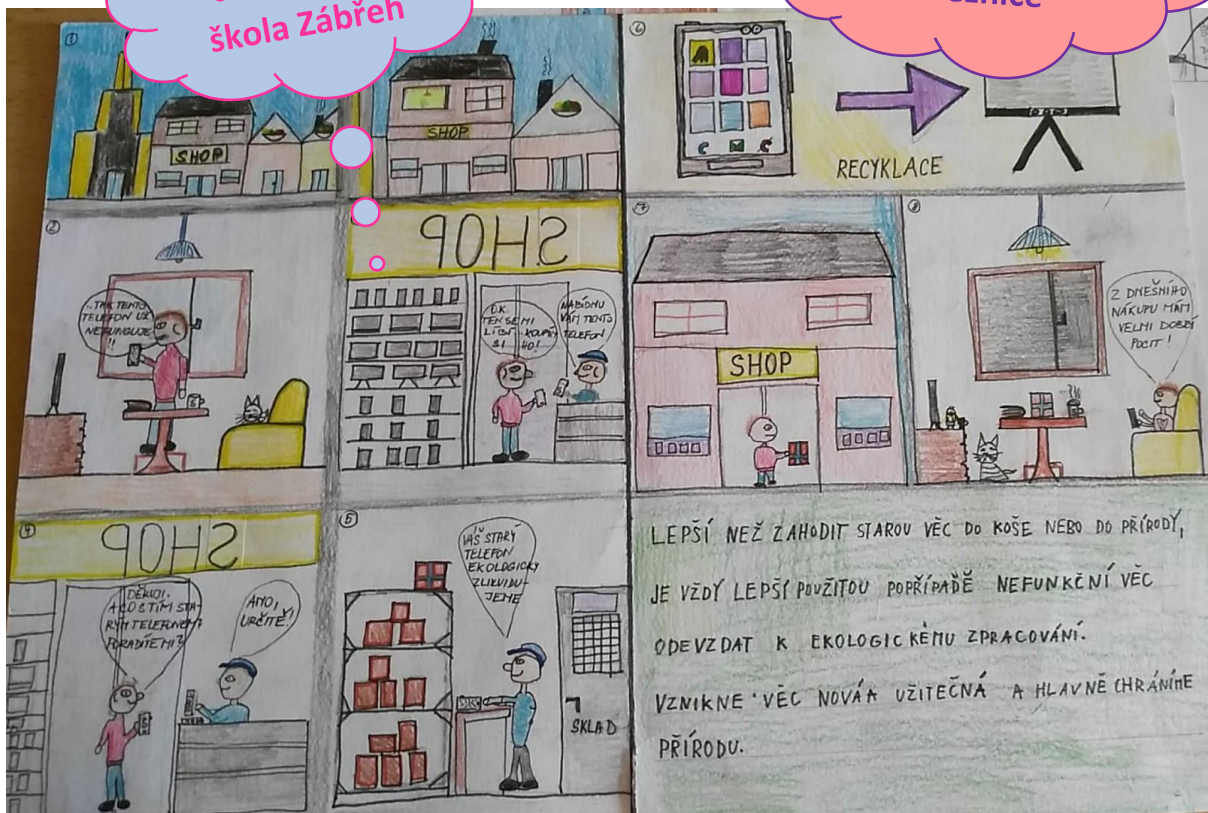 škola Zábřeh
①
SHOP
SHOP
②
..TAK TENTO
TELEFON UŽ
NEFUNGUJE
!!
SHOP
O.K.
TEN SE MI
LÍBÍ - KOUPÍM
SI HO!
NABÍDNU
VÁM TENTO
TELEFON!
④
SHOP
DĚKUJI.
A CO S TÍM STA-
RÝM TELEFONEM?
PORADÍTE MI?
ANO,
URČITĚ!
⑤
VÁŠ STARÝ
TELEFON
EKOLOGICKY
ZLIKVIDU-
JEME
SKLAD
⑥
RECYKLACE
⑦
SHOP
⑧
Z DNEŠNÍHO
NÁKUPU MÁM
VELMI DOBRÝ
POCIT!
LEPŠÍ NEŽ ZAHODIT STAROU VĚC DO KOŠE NEBO DO PŘÍRODY,
JE VŽDY LEPŠÍ POUŽITOU POPŘÍPADĚ NEFUNKČNÍ VĚC
ODEVZDAT K EKOLOGICKÉMU ZPRACOVÁNÍ.
VZNIKNE VĚC NOVÁ A UŽITEČNÁ A HLAVNĚ CHRÁNÍME
PŘÍRODU.